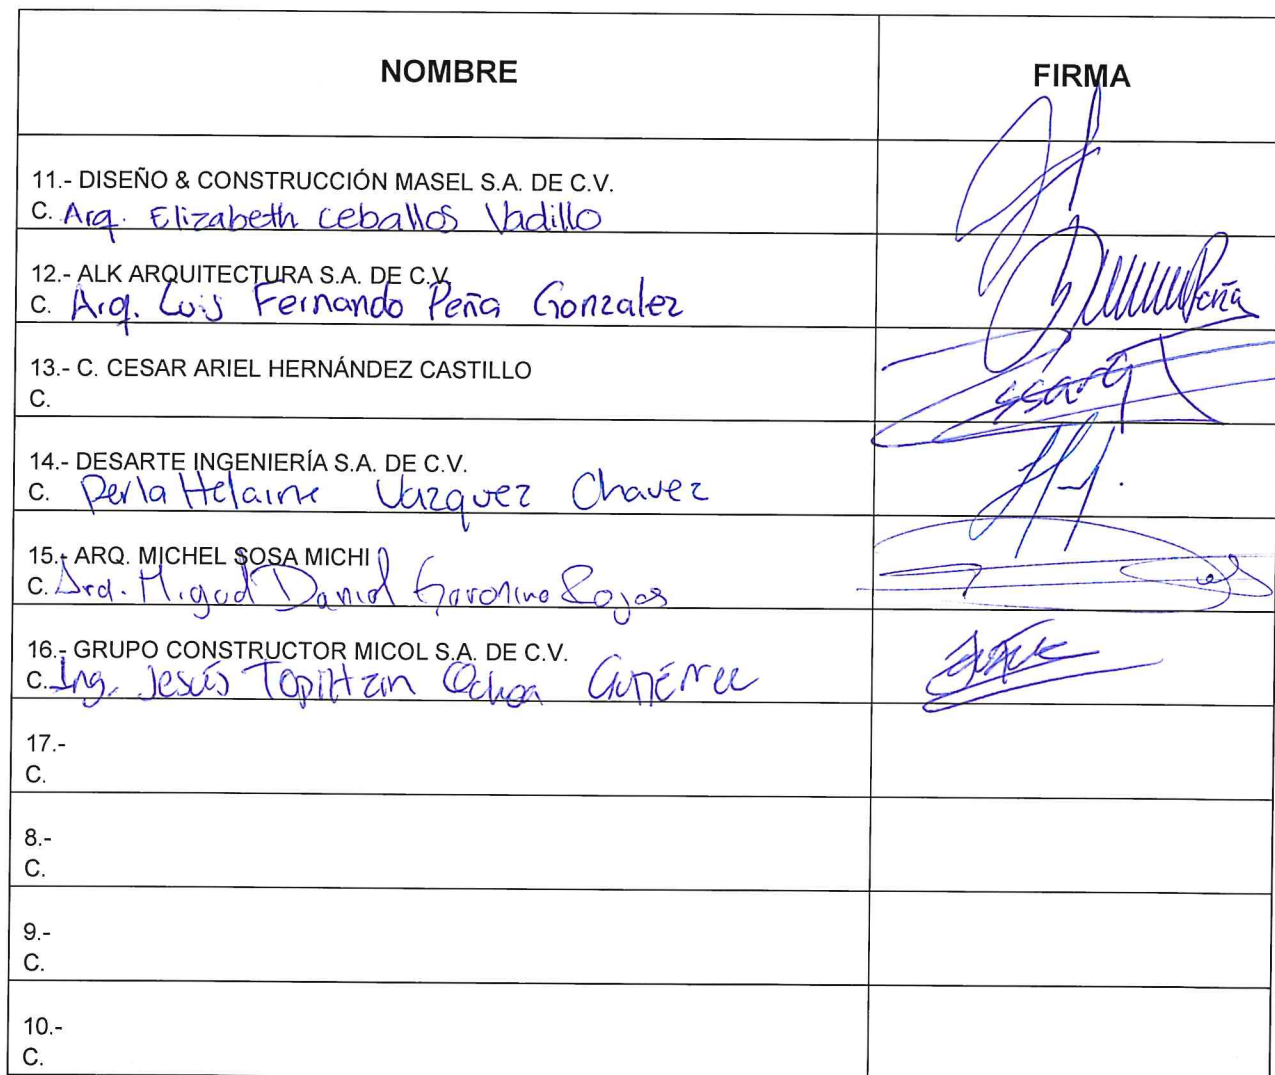 NOMBRE
FIRMA
11.- DISEÑO & CONSTRUCCIÓN MASEL S.A. DE C.V.
C. Arq. Elizabeth Ceballos Vadillo
12.- ALK ARQUITECTURA S.A. DE C.V.
C. Arq. Luis Fernando Peña Gonzalez
Peña
13.- C. CESAR ARIEL HERNÁNDEZ CASTILLO
C.
14.- DESARTE INGENIERÍA S.A. DE C.V.
C. Perla Helaine Vazquez Chavez
15.- ARQ. MICHEL SOSA MICHI
C. Daniel Rojas
16.- GRUPO CONSTRUCTOR MICOL S.A. DE C.V.
C. Ing. Jesús Topiltzin Ochoa
17.-
C.
8.-
C.
9.-
C.
10.-
C.